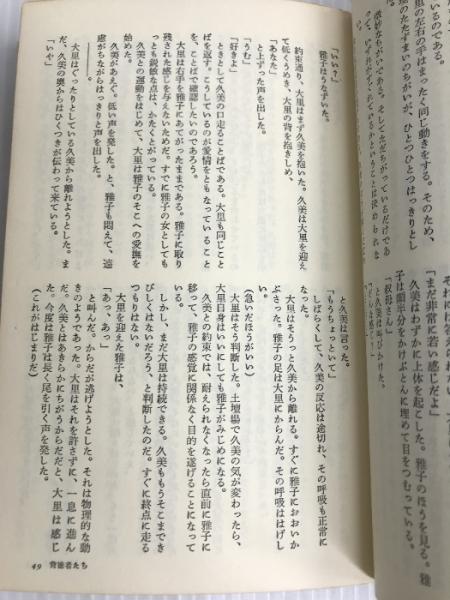 いるのである。
里の左右の手はまったく同じ動きをする。そのため、
「まだ非常に若い感じだよ」
久美はわずかに上体を起こした。雅子のほうを見る。雅
子は顔半分をかけぶとんに埋めて目をつむっている。
「叔母さん」
と久美は呼びかけた。
「いい？」
雅子はうなずいた。
約束通り、大里はまず久美を抱いた。久美は大里を迎え
て低くうめき、大里の背を抱きしめ、
「あなた」
と上ずった声を出した。
「うむ」
「好きよ」
ときとして久美の口走ることばである。大里も同じこと
ばを返す。こうしているのが愛情をともなっていること
を、ことばで確認したいのであろう。
大里は右手を雅子にあてがったままである。雅子に取り
残された感じを与えないためだ。すでに雅子の女としても
っとも鋭敏な点は、かたくとがっている。
久美との運動をはじめて、大里は雅子のそこへの愛撫を
始めた。
久美があえぐ。低い声を発した。と、雅子も悶えて、遠
慮がちながらはっきりと声を出した。
――――。
大里はぐったりとしている久美から離れようとした。ま
だ、久美の奥からはひくつきが伝わって来ている。
「いや」
と久美は言った。
「もうちょっといて」
しばらくして、久美の反応は途切れ、その呼吸も正常に
なった。
大里はそうっと久美から離れる。すぐに雅子におおいか
ぶさった。雅子の足は大里にからんだ。その呼吸ははげし
い。
（急いだほうがいい）
大里はそう判断した。土壇場で久美の気が変わったら、
大里自身はいいにしても雅子がみじめになる。
久美との約束では、耐えられなくなったら直前に雅子に
移って、雅子の感覚に関係なく目的を遂げることになって
いる。
しかし、まだ大里は持続できる。久美ももうそこまでき
びしくはないだろう、と判断したのだ。すぐに終点に走る
つもりはない。
大里を迎えた雅子は、
「あっ、あっ」
と叫んだ。からだが逃げようとした。それは物理的な動
きのようであった。大里はそれを許さずに、一息に進ん
だ。久美とはあきらかにちがうからだだと、大里は感じ
た。今度は雅子は長く尾を引く声を発した。
（これがはじまりだ）
49 背徳者たち